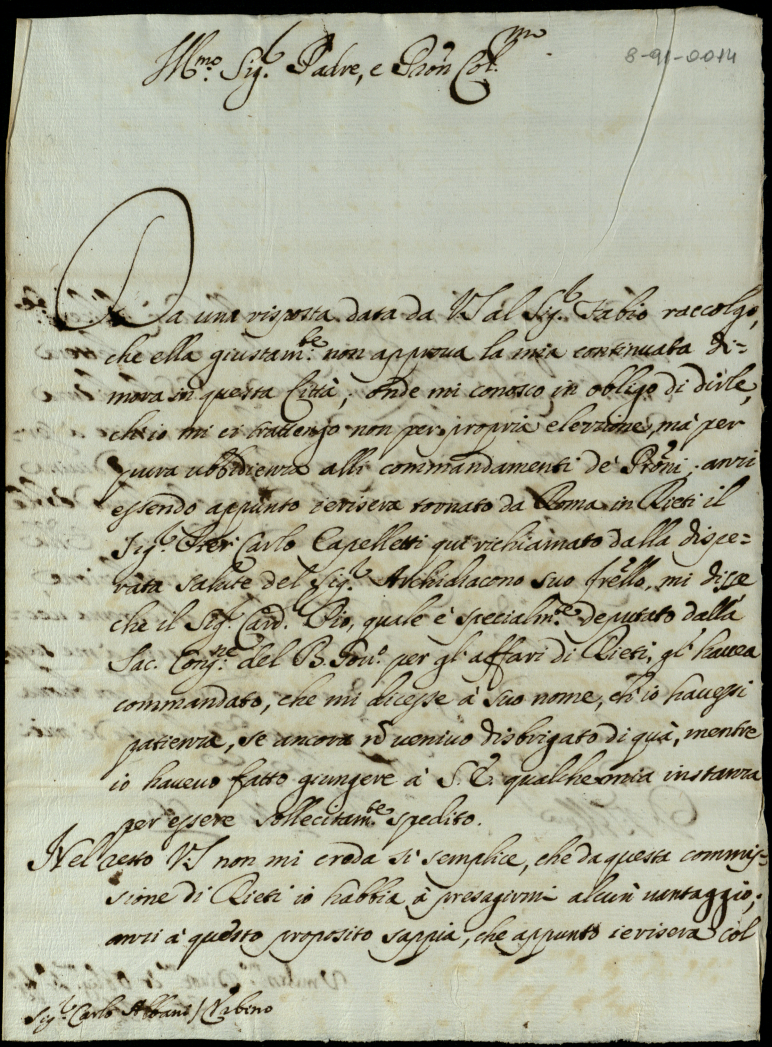 8-91-0014
Ill.mo Sig.r Padre, e Pron Col.mo
Da una risposta data da VS al Sig.r Fabio raccolgo,
che ella giustam.te non approva la mia continuata di=
mora in questa Città; onde mi conosco in obligo di dirle,
ch'io mi ci trattengo non per propria elezzione, mà per
pura ubbidienza alli commandamenti de' Proni; anzi
essendo appunto ierisera tornato da Roma in Rieti il
Sig.r Pier Carlo Capelletti qui richiamato dalla dispe=
rata salute del Sig.r Archidiacono suo frello, mi disse
che il Sig.r Card. Pio, quale è specialm.te deputato dalla
Sac. Cong.ne del B. Gov.o per gl'affari di Rieti, gl'havea
commandato, che mi dicesse à suo nome, ch'io havessi
patienza, se ancora nō venivo disbrigato di quà, mentre
io havevo fatto giungere à S.E. qualche mia instanza
per essere sollecitam.te spedito.
Nel resto VS non mi creda sì semplice, che da questa commis=
sione di Rieti io habbia à presagirmi alcun vantaggio;
anzi à questo proposito sappia, che appunto ierisera col
Sig.r Carlo Albani / Urbino